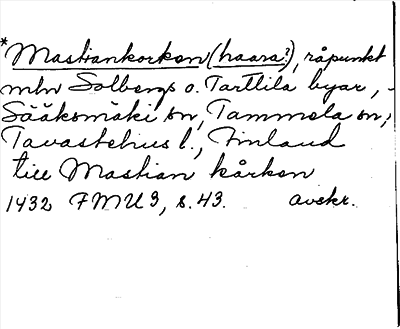 *Mastiankorkon (haara?), råpunkt
mln Solbergs o. Tarttila byar,
Sääksmäki sn, Tammela sn,
Tavastehus l., Finland
till Mastian kårkon
1432 FMU 3, s. 43. avskr.